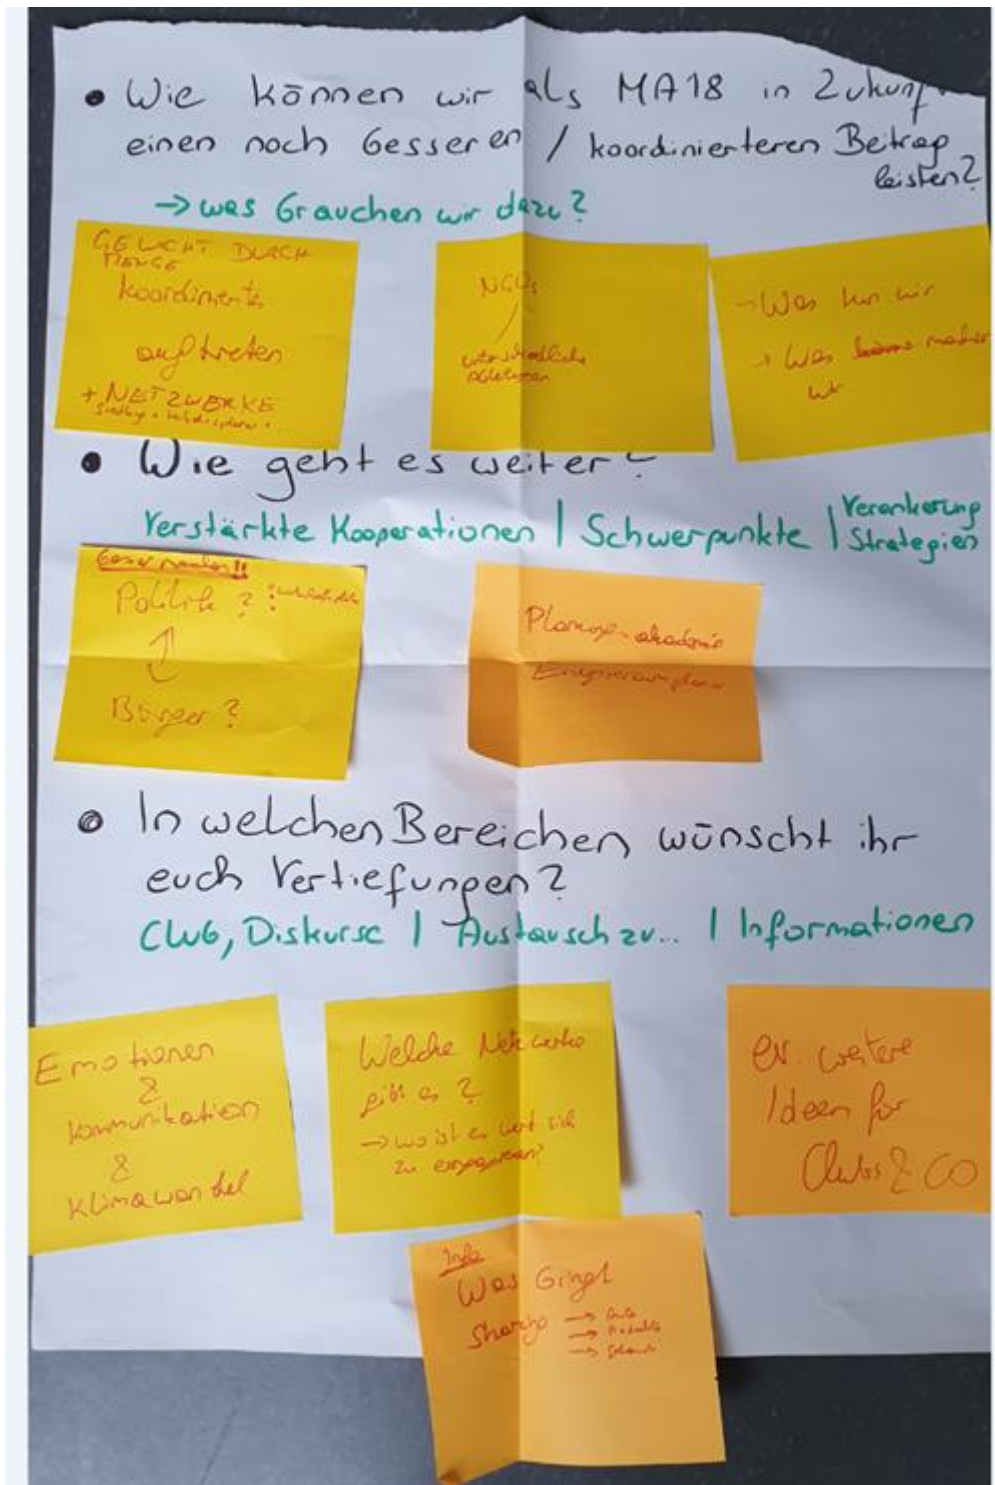 • Wie können wir als MA18 in Zukunf
einen noch besseren / koordinierteren Beitrag
leisten?
→ was brauchen wir dazu?
GEWICHT DURCH
MENGE
koordiniertes
auftreten
+ NETZWERKE
NGOs
unterschiedliche
→ Was tun wir
→ Was machen
wir
• Wie geht es weiter?
Verstärkte Kooperationen | Schwerpunkte | Verankerung
Strategien
Politik ?
Bürger ?
Planungsakademie
• In welchen Bereichen wünscht ihr
euch Vertiefungen?
Club, Diskurse | Austausch zu... | Informationen
Emotionen
&
Kommunikation
&
Klimawandel
Welche Netzwerke
gibt es ?
→ wo ist es wert sich
zu engagieren?
ev. weitere
Ideen für
Clubs & CO
Info
Was bingt
sharing → Auto
→
→